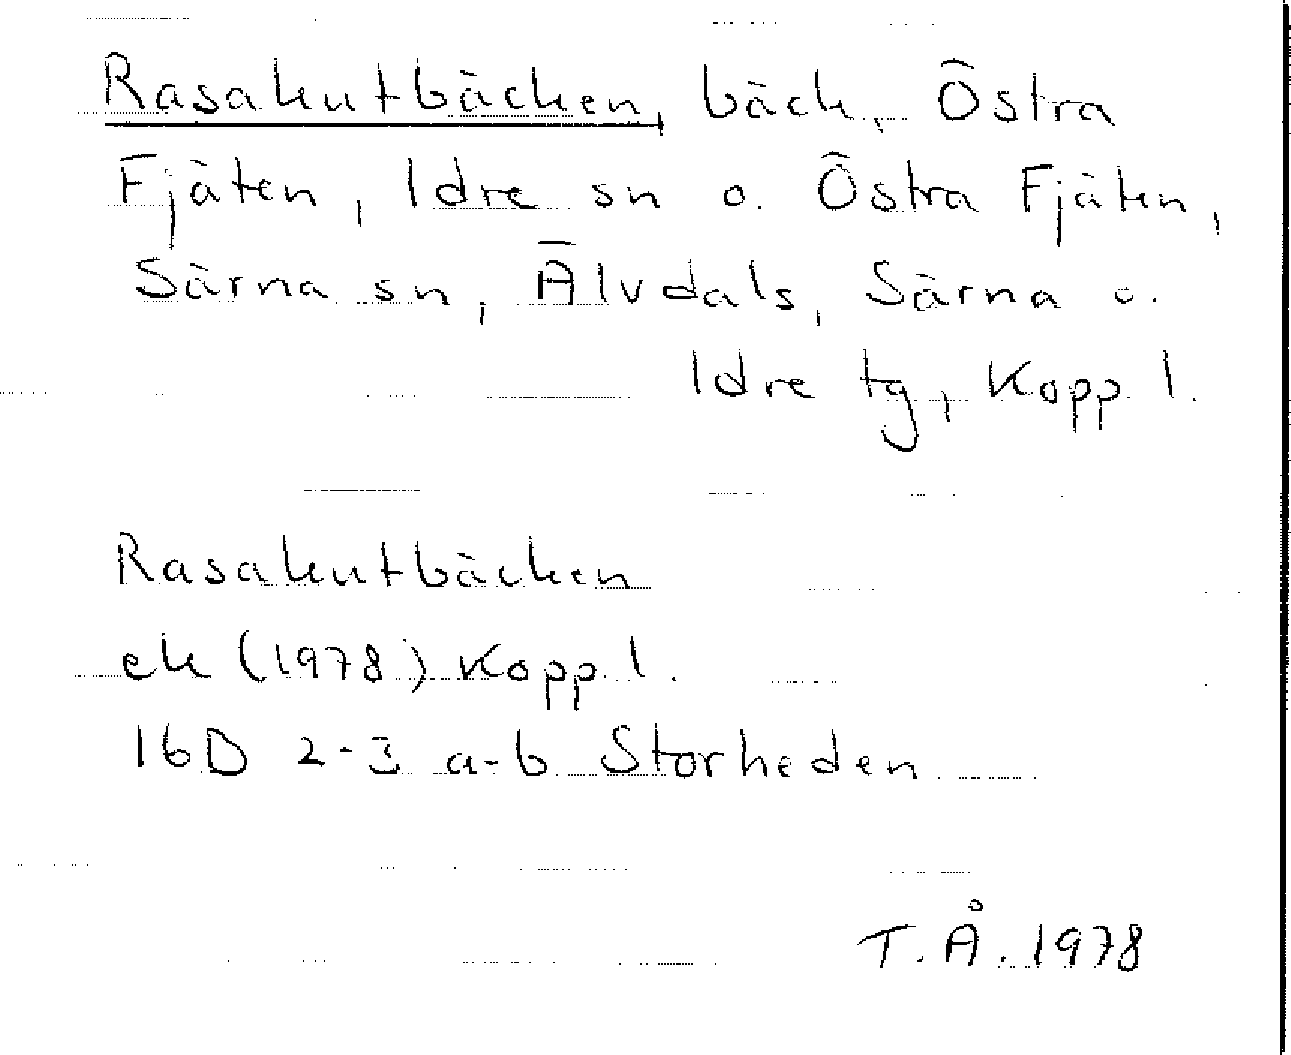 Rasakutbäcken, bäck, Östra
Fjäten, Idre sn o. Östra Fjäten,
Särna sn, Älvdals, Särna o.
Idre tg, Kopp. l.
Rasakutbäcken
ek (1978) Kopp. l.
16D 2-3 a-b Storheden
T. Å. 1978